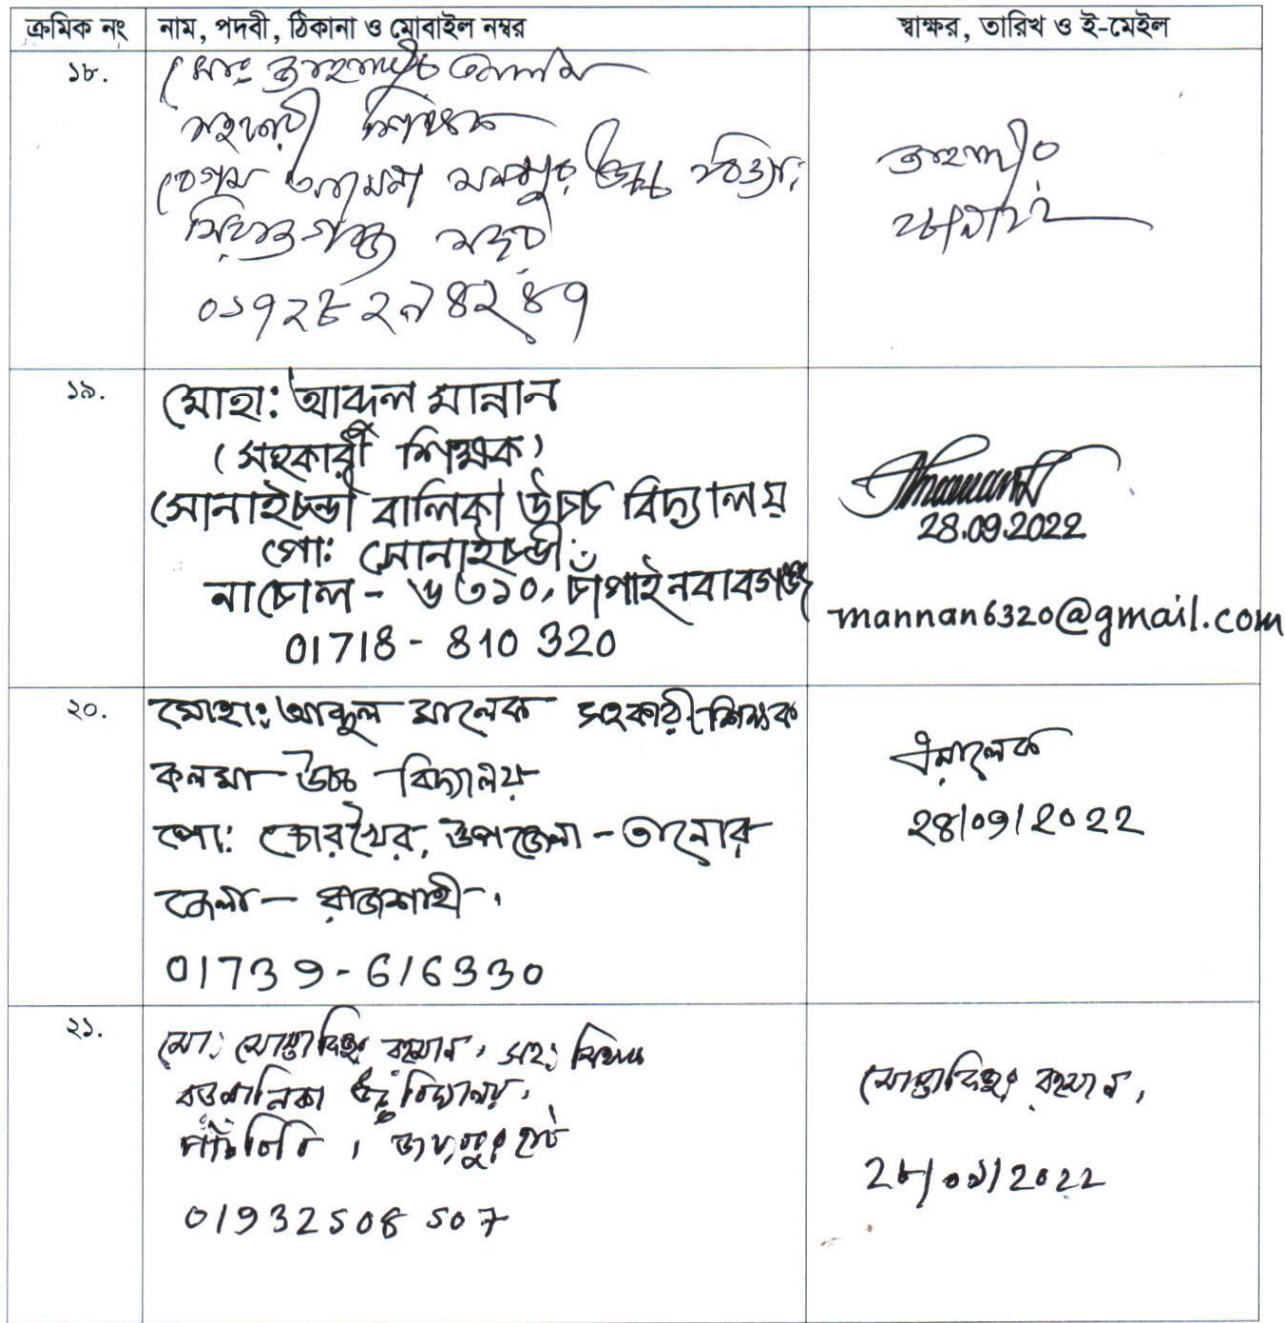 ক্রমিক নং নাম, পদবী, ঠিকানা ও মোবাইল নম্বর স্বাক্ষর, তারিখ ও ই-মেইল
১৮. মোঃ আলম
সহকারী শিক্ষক
বেগম আমেনা মনসুর উচ্চ
সিরাজগঞ্জ সদর
০১৭২৮২৯৪২৪৭
১৯. মোহা: আব্দুল মান্নান
(সহকারী শিক্ষক)
সোনাইচন্ডী বালিকা উচ্চ বিদ্যালয়
পো: সোনাইচন্ডী
নাচোল - ৬৩১০, চাঁপাইনবাবগঞ্জ
01718-810 320
28.09.2022
mannan6320@gmail.com
২০. মোহা: আব্দুল মালেক সহকারী শিক্ষক
কলমা উচ্চ বিদ্যালয়
পো: চোরখৈর, উপজেলা - তানোর
জেলা - রাজশাহী।
01739-616330
মালেক
28/09/2022
২১. মো: মোস্তাফিজুর রহমান, সহ: শিক্ষক
বিদ্যালয়,
পাঁচবিবি, জয়পুরহাট
01932508507
মোস্তাফিজুর রহমান,
২৮/০৯/2022